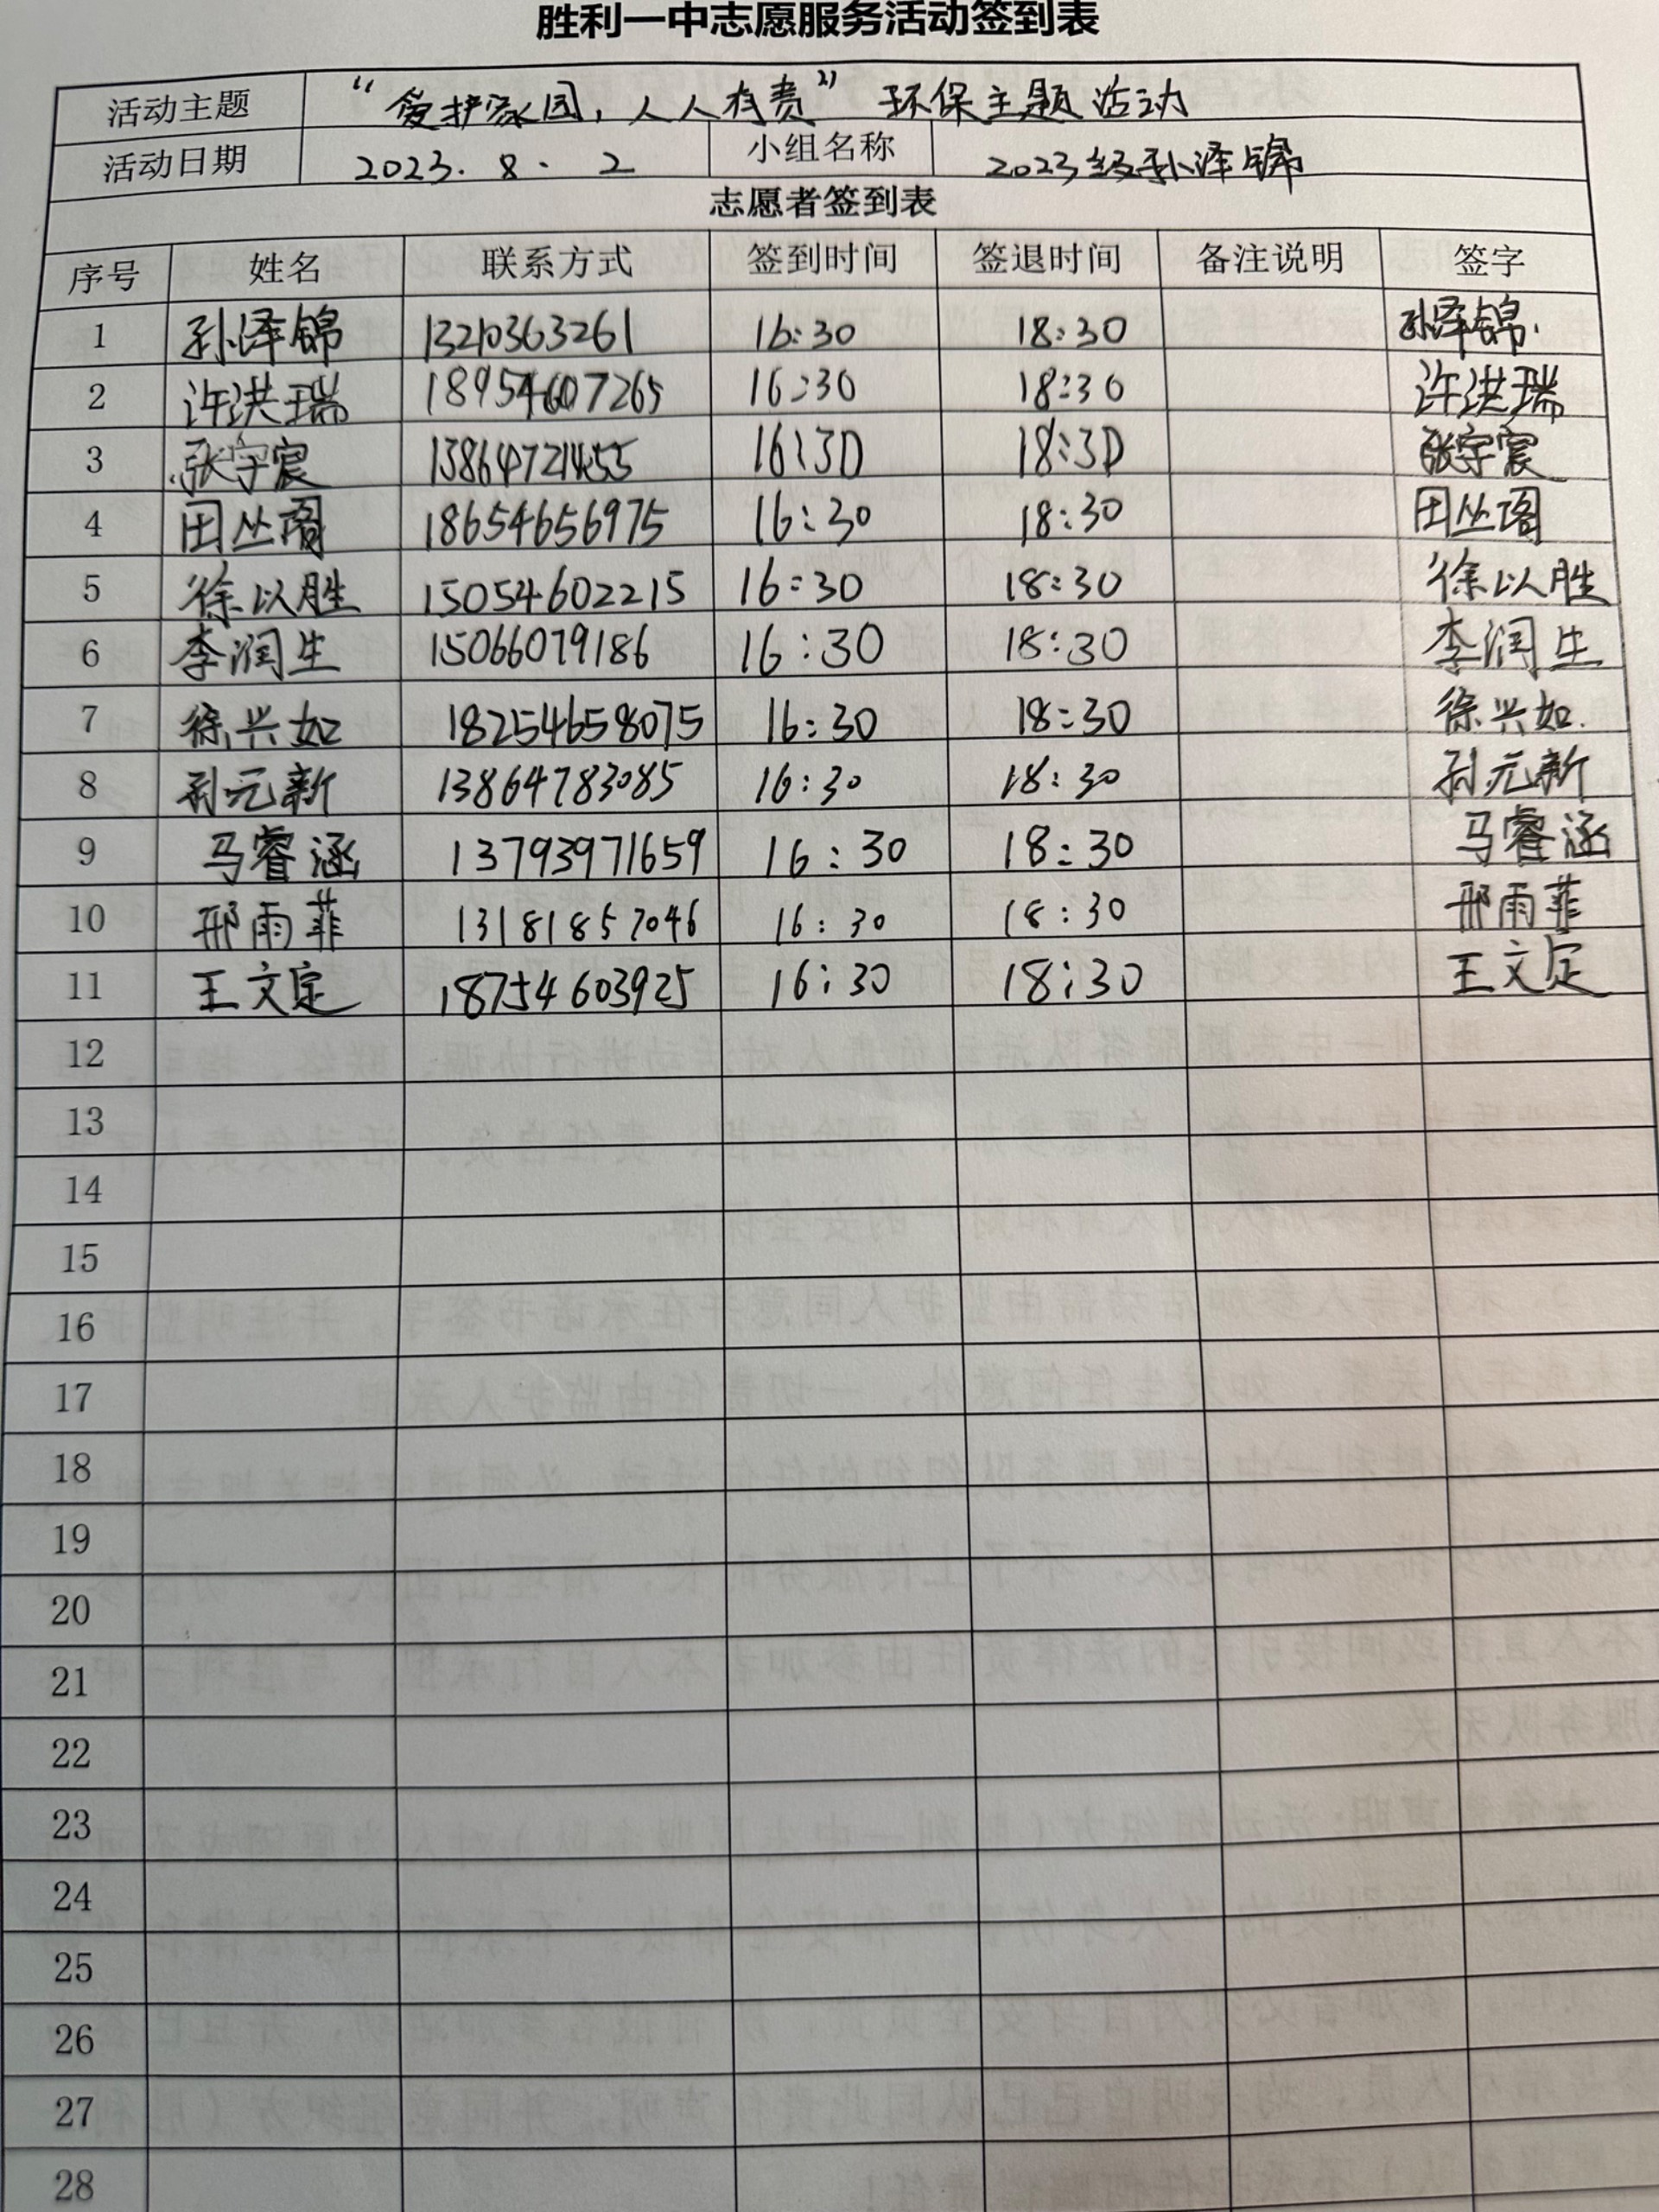 胜利一中志愿服务活动签到表
活动主题 “爱护家园，人人有责” 环保主题活动
活动日期 2023. 8. 2 小组名称 2023级孙泽锦
志愿者签到表
序号 姓名 联系方式 签到时间 签退时间 备注说明 签字
1 孙泽锦 13210363261 16:30 18:30 孙泽锦.
2 许洪瑞 18954607265 16:30 18:30 许洪瑞
3 张宇宸 13864721455 16:30 18:30 张宇宸
4 田丛 18654656975 16:30 18:30 田丛
5 徐以胜 15054602215 16:30 18:30 徐以胜
6 李润生 15066079186 16:30 18:30 李润生
7 徐兴如 18254658075 16:30 18:30 徐兴如.
8 孙元新 13864783085 16:30 18:30 孙元新
9 马睿涵 13793971659 16:30 18:30 马睿涵
10 邢雨菲 13181857046 16:30 18:30 邢雨菲
11 王文定 18754603925 16:30 18:30 王文定
12
13
14
15
16
17
18
19
20
21
22
23
24
25
26
27
28